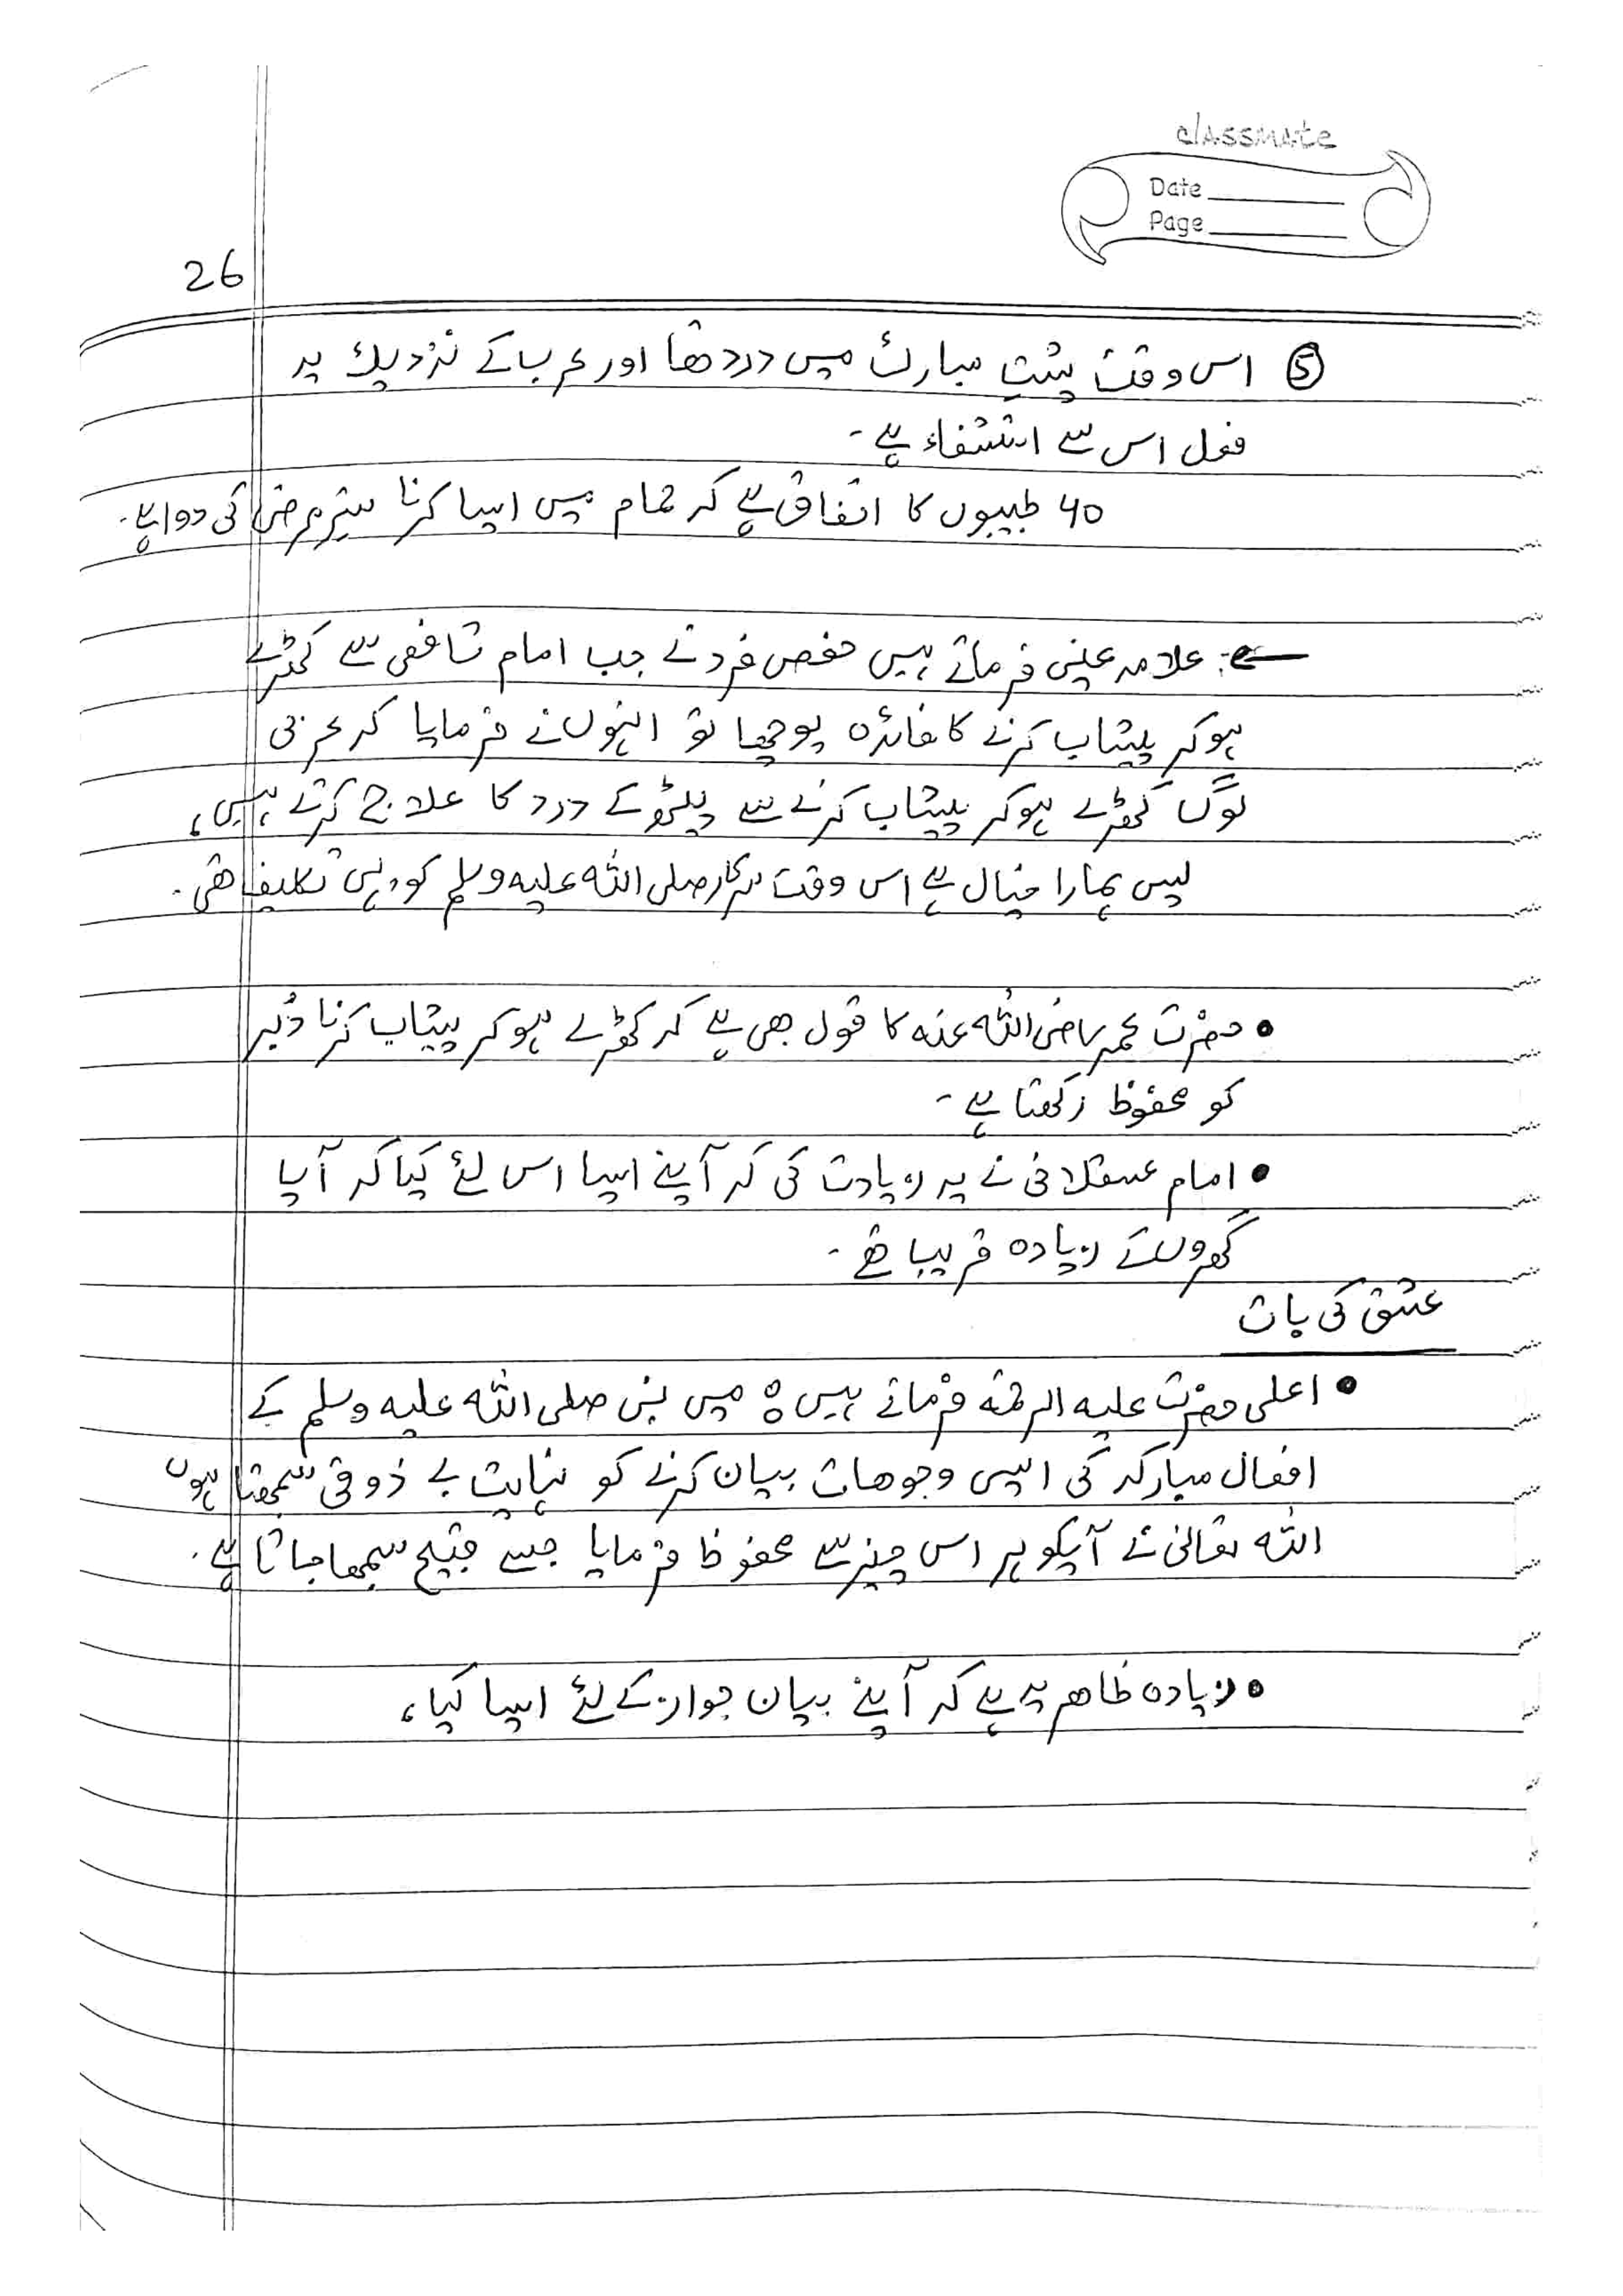 classmate
Date
Page
26
⑤ اس وقت پشتِ مبارک میں درد تھا اور عرب کے نزدیک یہ
فعل اس سے استشفاء ہے۔
40 طبیبوں کا اتفاق ہے کہ حمام میں ایسا کرنا ستر مرض کی دوا ہے۔
علامہ عینی فرماتے ہیں حفص فرد نے جب امام شافعی سے کھڑے
ہوکر پیشاب کرنے کا فائدہ پوچھا تو انہوں نے فرمایا کہ عربی
لوگ کھڑے ہوکر پیشاب کرنے سے پیٹھ کے درد کا علاج کرتے ہیں،
پس ہمارا خیال ہے اس وقت سرکار صلی اللہ علیہ وسلم کو یہی تکلیف تھی۔
• حضرت عمر رضی اللہ عنہ کا قول بھی ہے کہ کھڑے ہوکر پیشاب کرنا دُبر
کو محفوظ رکھتا ہے۔
• امام عسقلانی نے یہ زیادت کی کہ آپنے ایسا اس لئے کیا کہ آپ
گھروں کے زیادہ قریب تھے۔
عشق کی بات
• اعلی حضرت علیہ الرحمۃ فرماتے ہیں ہ میں نبی صلی اللہ علیہ وسلم کے
افعال مبارکہ کی ایسی وجوہات بیان کرنے کو نہایت بے ذوقی سمجھتا ہوں
اللہ تعالی نے آپکو ہر اس چیز سے محفوظ فرمایا جسے قبیح سمجھا جاتا ہے۔
• زیادہ ظاھر یہ ہے کہ آپنے بیان جواز کے لئے ایسا کیا،